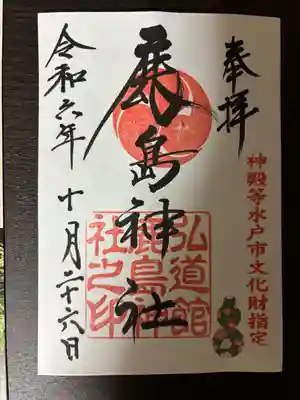 奉拝
神殿等水戸市文化財指定
鹿島神社
弘道館
鹿島神
社之印
令和六年
十月二十六日